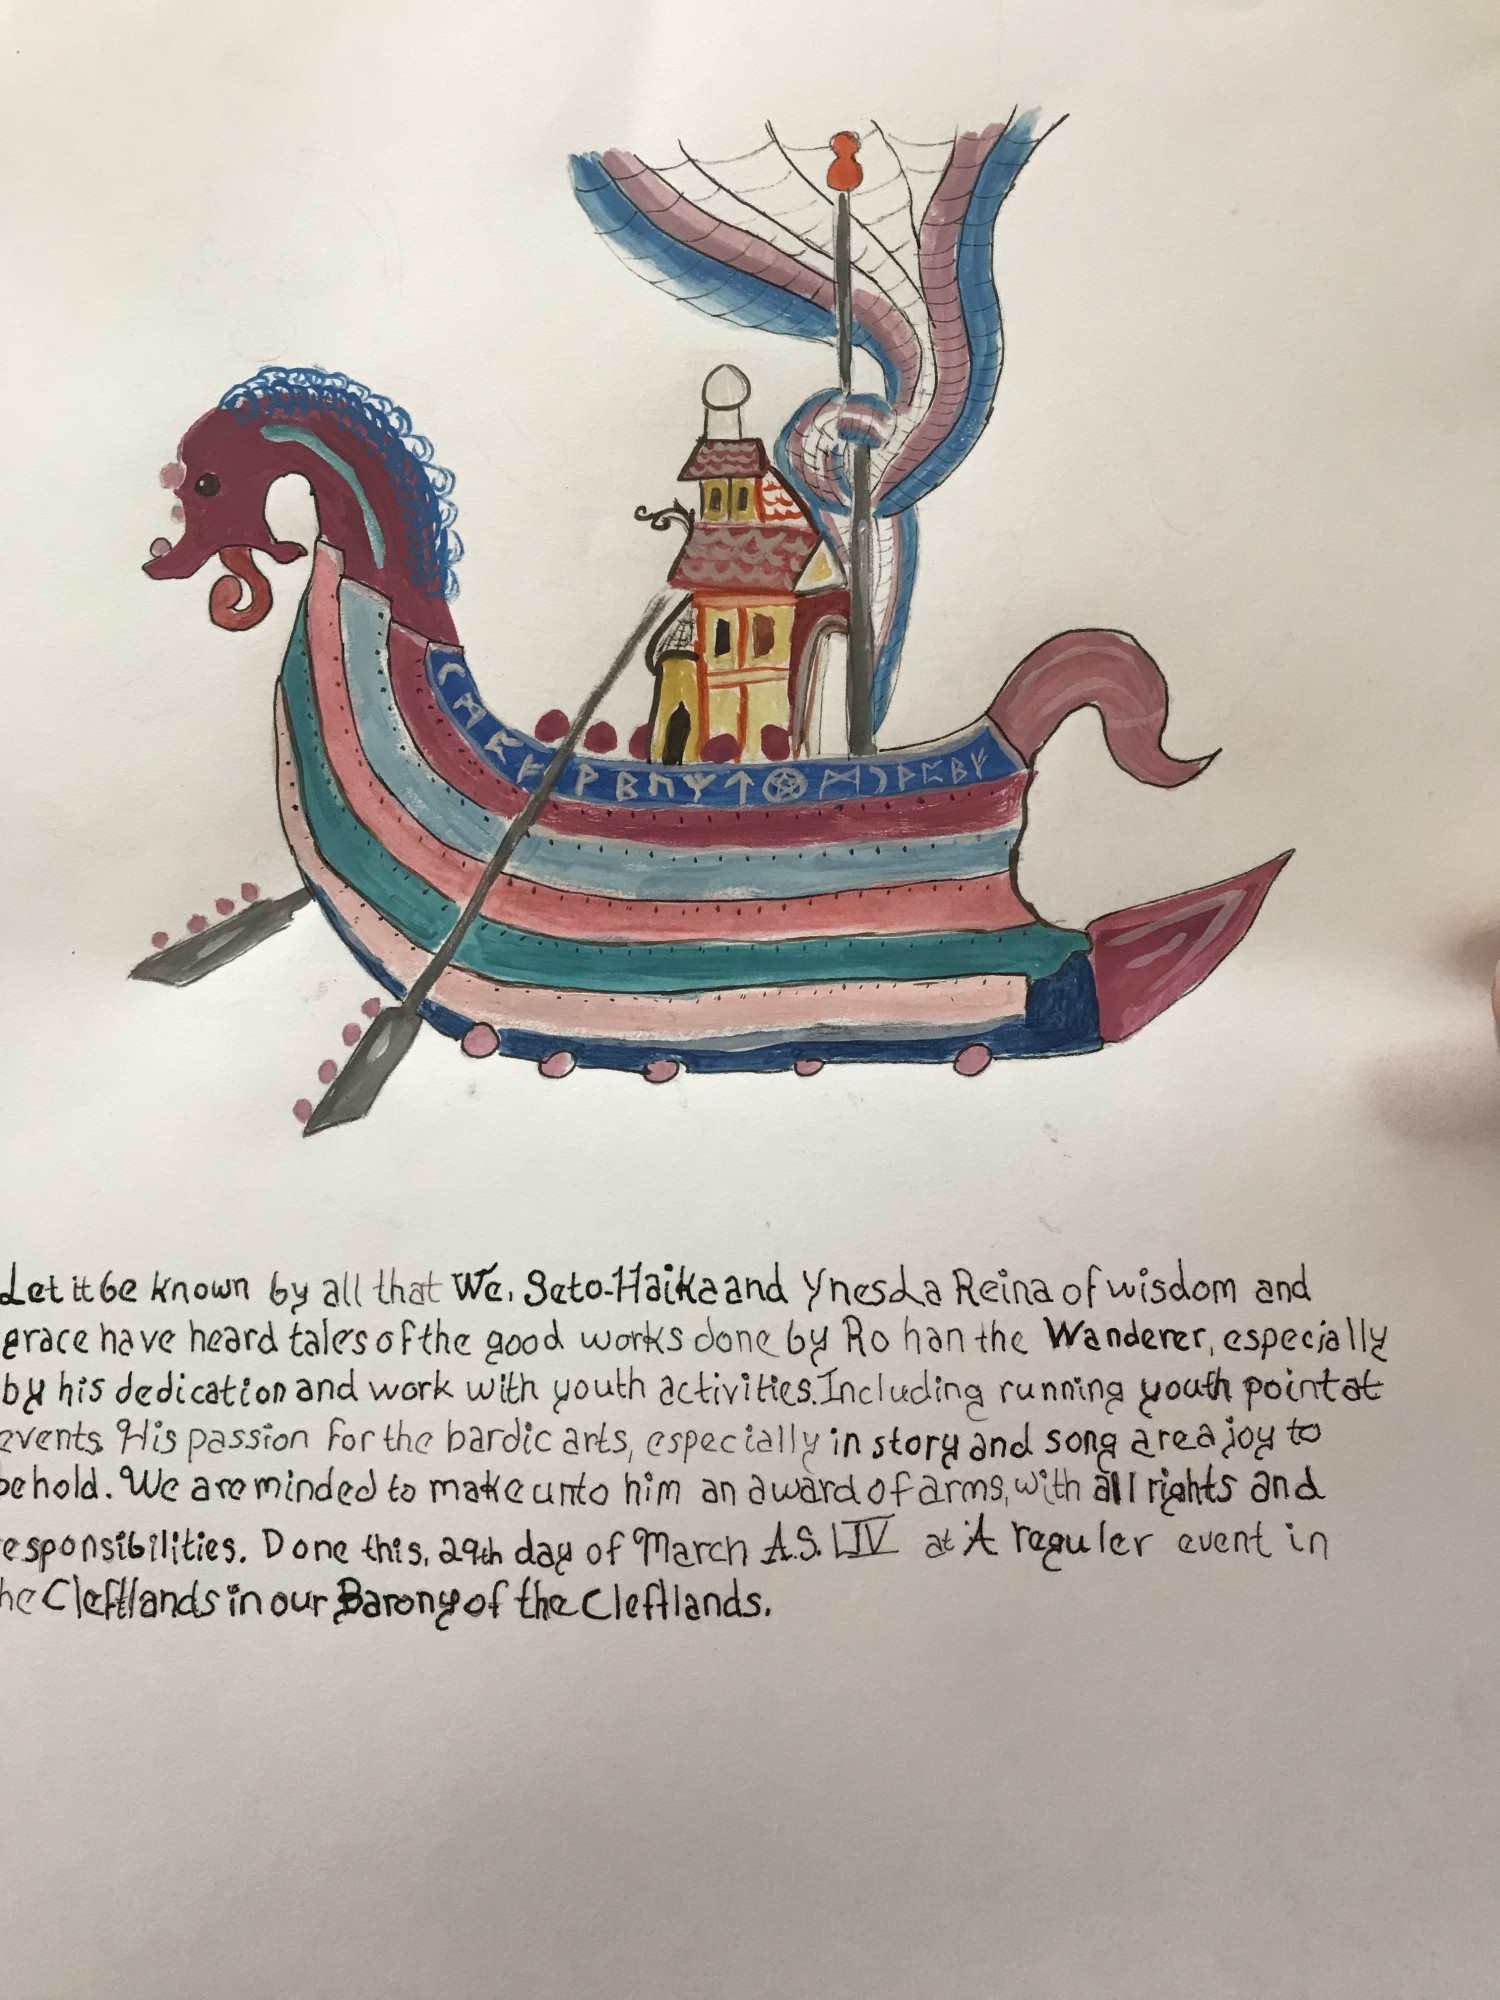 ᚲᛗᛈᚠᚹᛒᚢᛉᛏᛗᚹᛈᛒᚠ
Let it be known by all that We, Seto-Haika and Ynes La Reina of wisdom and
grace have heard tales of the good works done by Ro han the Wanderer, especially
by his dedication and work with youth activities. Including running youth point at
events. His passion for the bardic arts, especially in story and song are a joy to
behold. We are minded to make unto him an award of arms, with all rights and
esponsibilities. Done this, 29th day of March A.S. LIV at A reguler event in
he Cleftlands in our Barony of the Cleftlands.